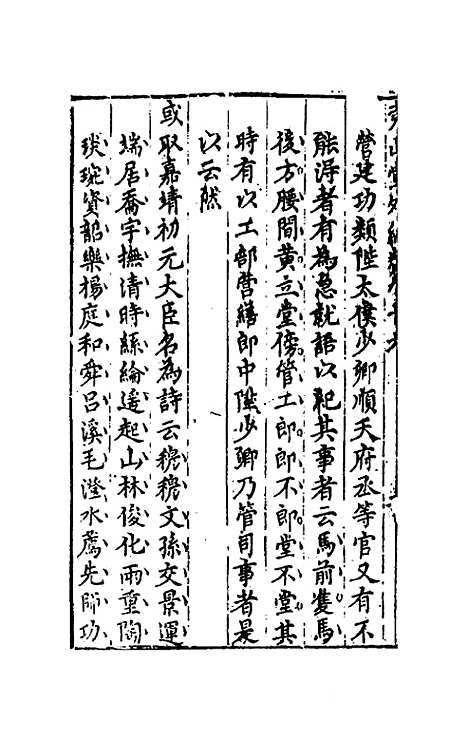 營建功類陞太僕少卿順天府丞等官又有不
能淂者有為急就語以紀其事者云馬前隻馬
後方腰間黄立堂傍管工郎郎不郎堂不堂其
時有以工部營繕郎中陞少卿乃管司事者是
以云然
或取嘉靖初元大臣名為詩云穆穆文孫交景運
端居喬宇撫清時絲綸遙起山林俊化雨重陶
琰琬資韶樂楊庭和舜呂溪毛澄水薦先師功